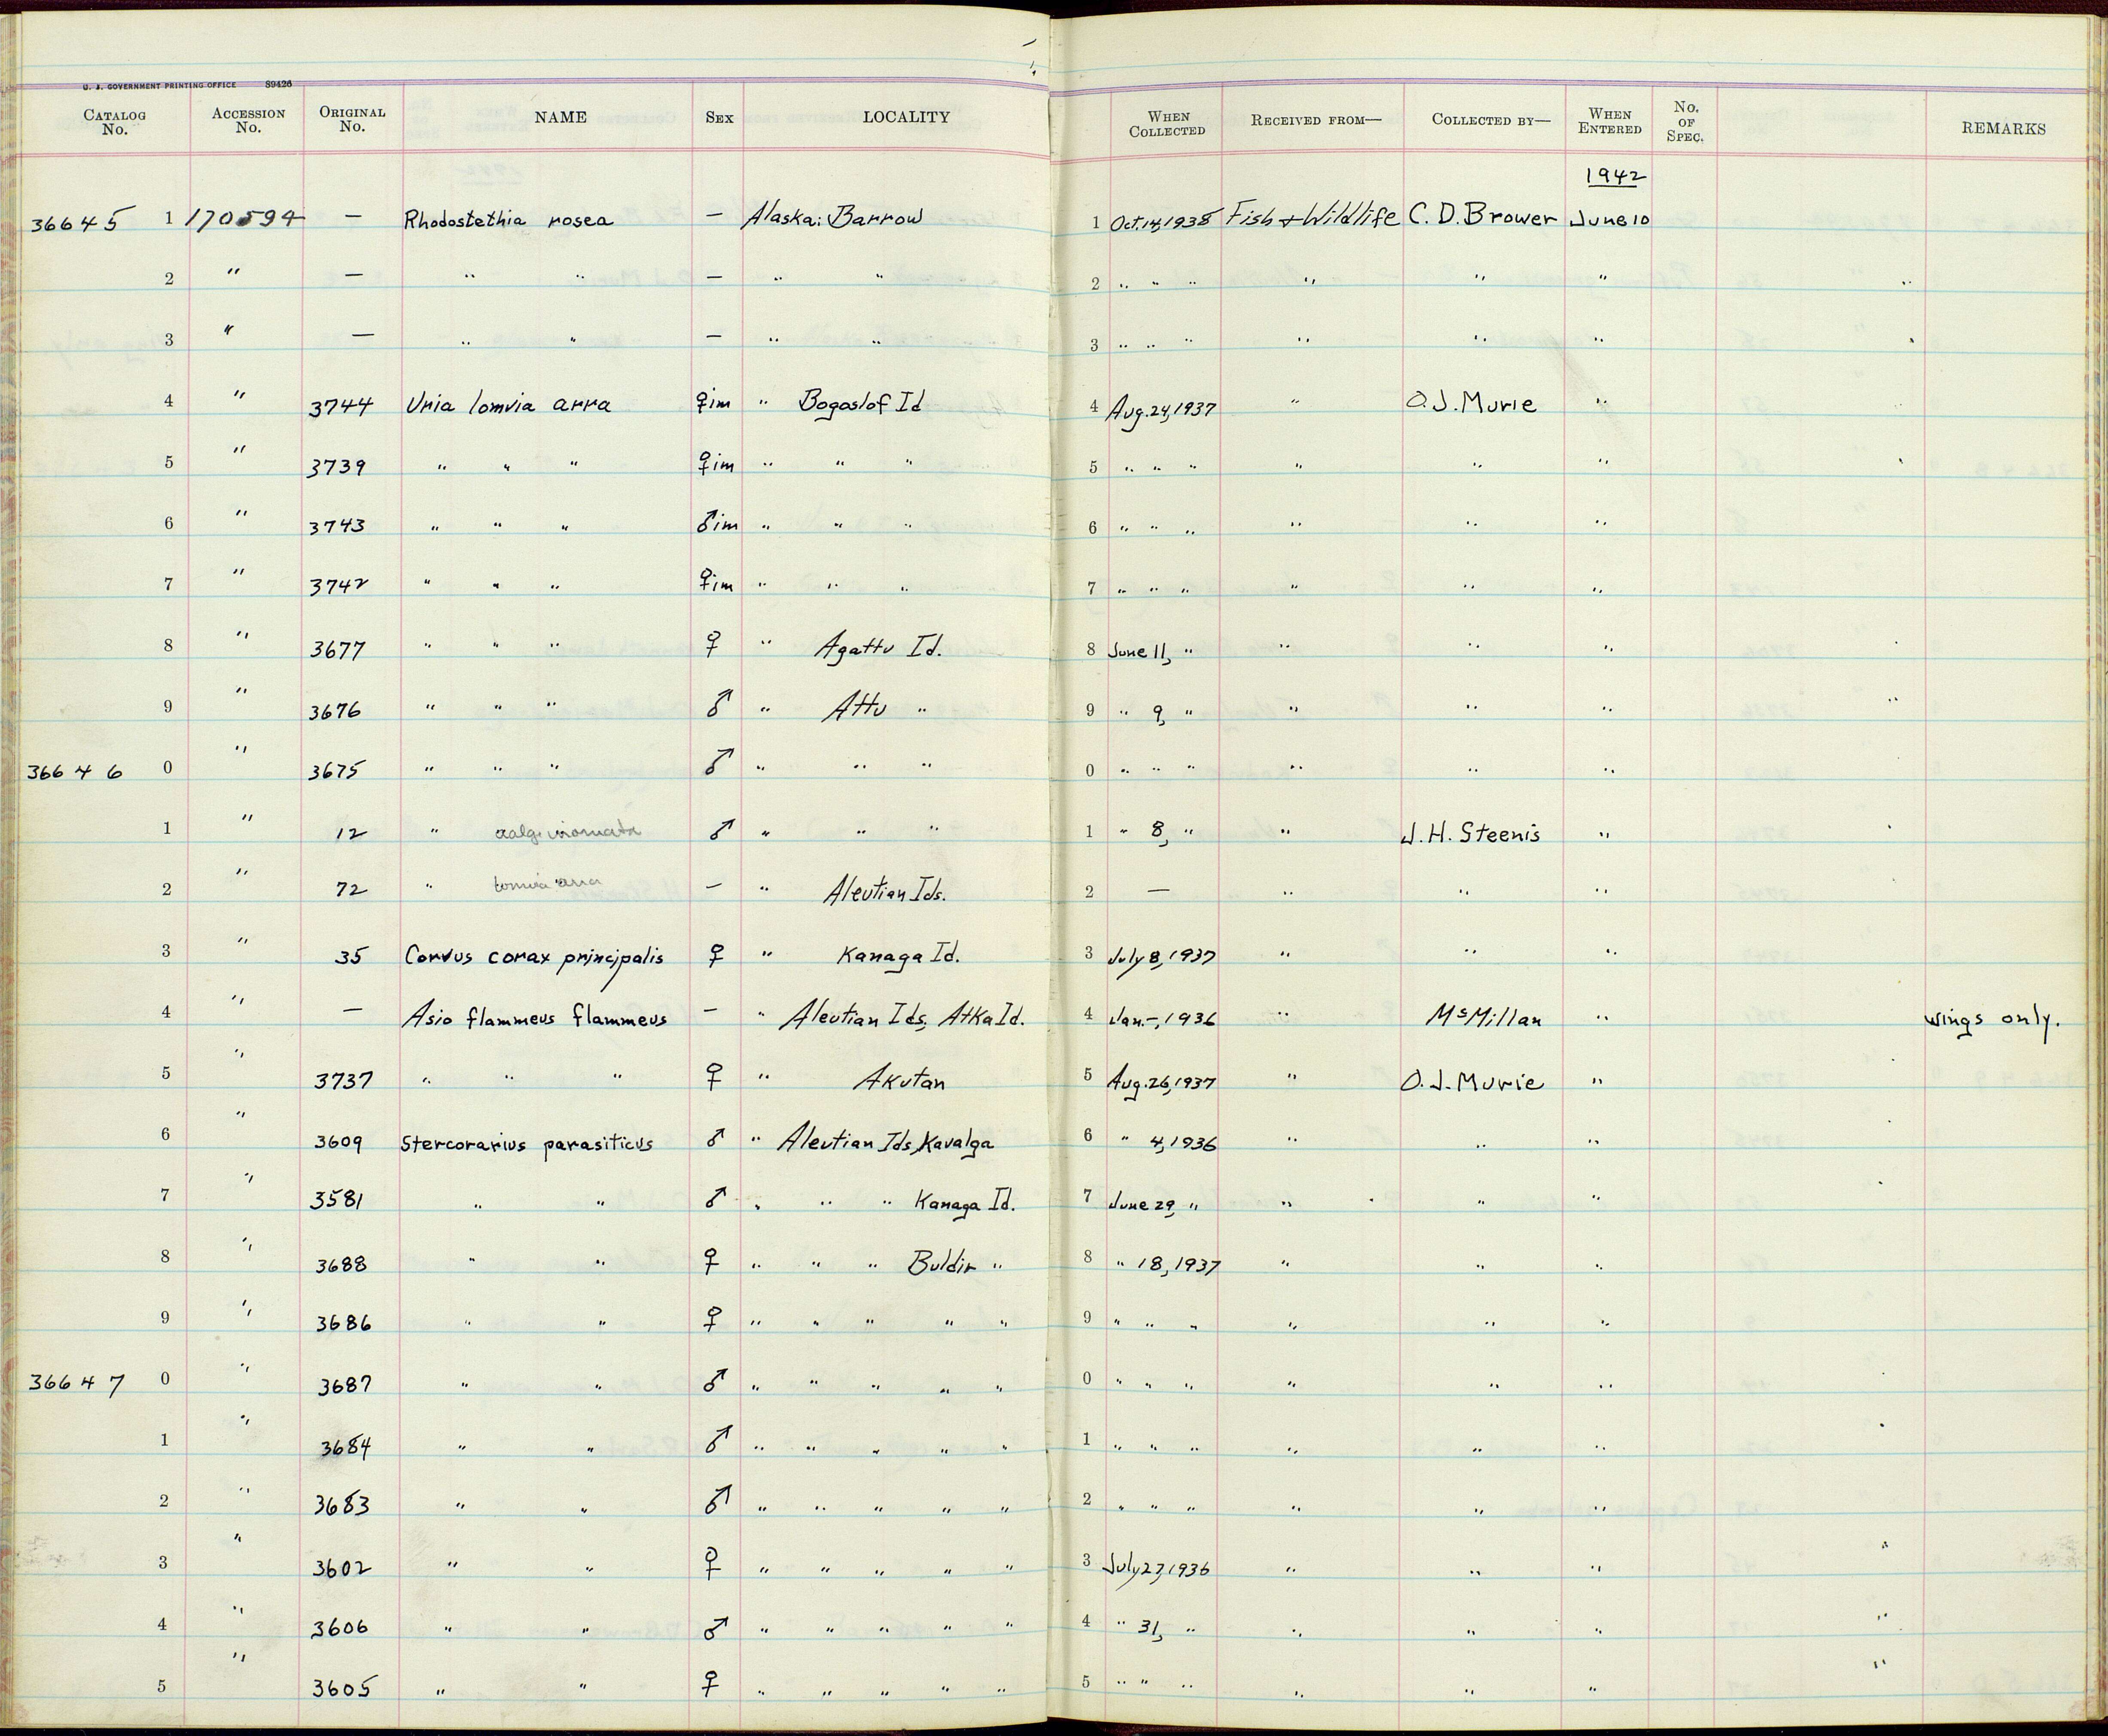 U. S. GOVERNMENT PRINTING OFFICE 89426
CATALOG No. ACCESSION No. ORIGINAL No. NAME SEX LOCALITY WHEN COLLECTED RECEIVED FROM— COLLECTED BY— WHEN ENTERED No. OF SPEC. REMARKS
1942
36645 1 170594 — Rhodostethia rosea — Alaska: Barrow 1 Oct. 14, 1938 Fish & Wildlife C. D. Brower June 10
2 " — " " — " " 2 " " " " " "
3 " — " " — " " 3 " " " " " "
4 " 3744 Uria lomvia arra ♀im " Bogoslof Id 4 Aug. 24, 1937 " O. J. Murie "
5 " 3739 " " " ♀im " " " 5 " " " " " "
6 " 3743 " " " ♂im " " " 6 " " " " " "
7 " 3742 " " " ♀im " " " 7 " " " " " "
8 " 3677 " " " ♀ " Agattu Id. 8 June 11, " " " "
9 " 3676 " " " ♂ " Attu " 9 " 9, " " " "
36646 0 " 3675 " " " ♂ " " " 0 " " " " " "
1 " 12 " aalge inornata ♂ " " " 1 " 8, " " J. H. Steenis "
2 " 72 " lomvia arra — " Aleutian Ids. 2 — " " "
3 " 35 Corvus corax principalis ♀ " Kanaga Id. 3 July 8, 1937 " " "
4 " — Asio flammeus flammeus — " Aleutian Ids, Atka Id. 4 Jan. –, 1936 " McMillan " wings only.
5 " 3737 " " " ♀ " Akutan 5 Aug. 26, 1937 " O. J. Murie "
6 " 3609 Stercorarius parasiticus ♂ " Aleutian Ids, Kavalga 6 " 4, 1936 " " "
7 " 3581 " " ♂ " " " Kanaga Id. 7 June 29, " " " "
8 " 3688 " " ♀ " " " Buldir " 8 " 18, 1937 " " "
9 " 3686 " " ♀ " " " " " 9 " " " " " "
36647 0 " 3687 " " ♂ " " " " " 0 " " " " " "
1 " 3684 " " ♂ " " " " " 1 " " " " " "
2 " 3683 " " ♂ " " " " " 2 " " " " " "
3 " 3602 " " ♀ " " " " " 3 July 27, 1936 " " "
4 " 3606 " " ♂ " " " " " 4 " 31, " " " "
5 " 3605 " " ♀ " " " " " 5 " " " " " "